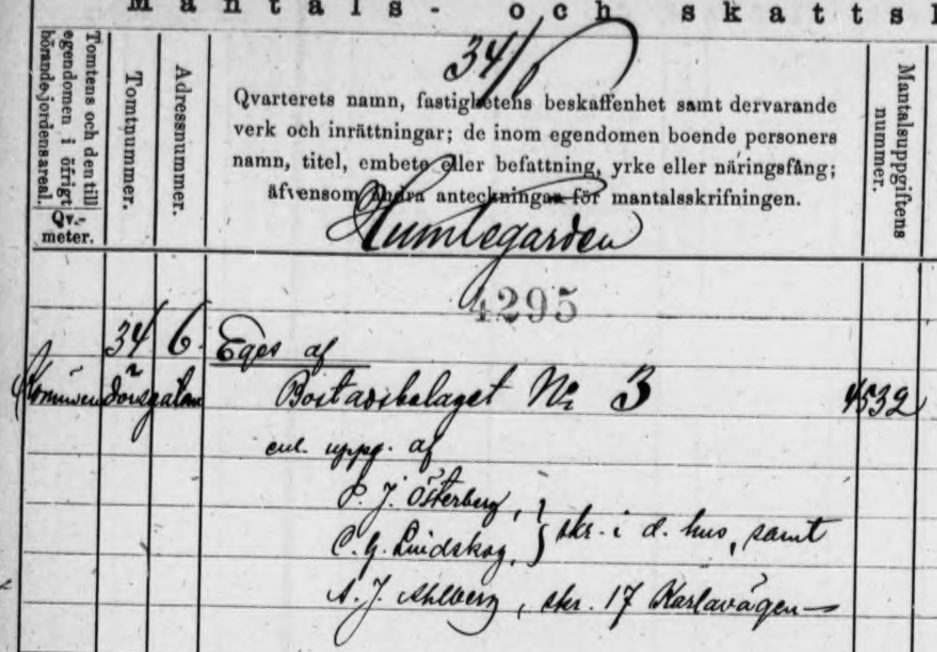 Mantals- och skatts
34/
Tomtens och den till
egendomen i öfrigt
hörande jordens areal.
Qv.-
meter.
Tomtnummer.
Adressnummer.
Qvarterets namn, fastighetens beskaffenhet samt dervarande
verk och inrättningar; de inom egendomen boende personers
namn, titel, embete eller befattning, yrke eller näringsfång;
äfvensom andra anteckningar för mantalsskrifningen.
Mantalsuppgiftens
nummer.
Humlegården
4295
34 6. Eges af
Bostadsbolaget No 3 4532
enl. uppg. af
P. J. Österberg,
C. G. Lindskog, } skr. i d. hus, samt
A. J. Ahlberg, skr. 17 Karlavägen